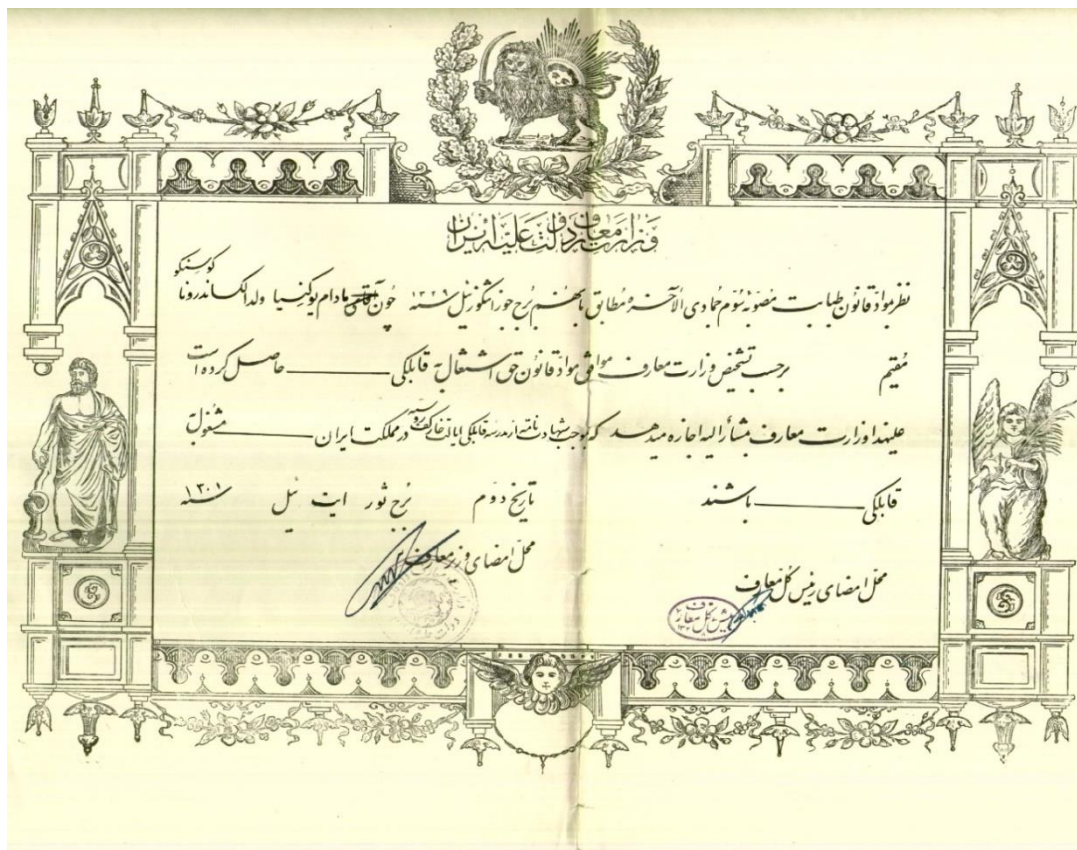 وزارت معارف دولت علیه ایران
نظر بمواد قانون طبابت مصوبه سوم جمادی الآخره مطابق با نهم برج جوزا تنگوزئیل سنه ۱۳۲۹ چون مادام یوکنسیا ولد الکساندرونا
مقیم برحسب تشخیص وزارت معارف موافق مواد قانون حق اشتغال به قابلگی حاصل کرده است
علیهذا وزارت معارف بمشارالیه اجازه میدهد که بموجب شهادت نامه از مدرسه قابلگی روسیه در مملکت ایران مشغول به
قابلگی باشند
تاریخ دوم برج ثور ایت ئیل سنه ۱۳۰۱
محل امضای وزیر معارف
محل امضای رئیس کل معارف